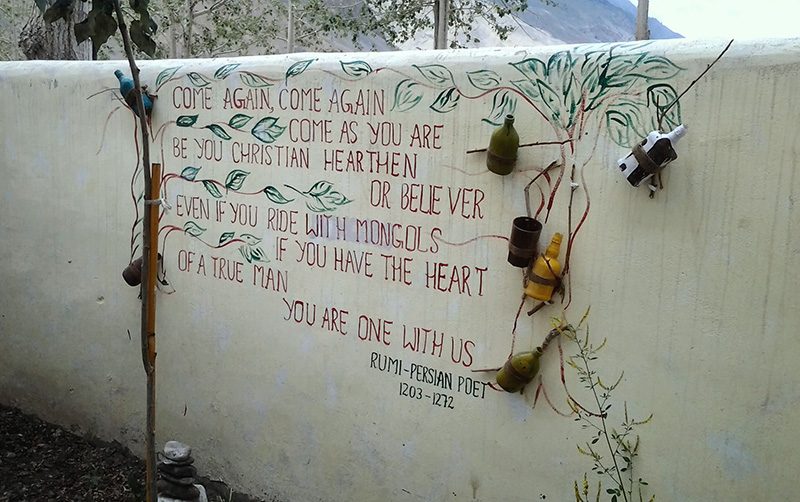 COME AGAIN, COME AGAIN
COME AS YOU ARE
BE YOU CHRISTIAN HEARTHEN
OR BELIEVER
EVEN IF YOU RIDE WITH MONGOLS
IF YOU HAVE THE HEART
OF A TRUE MAN
YOU ARE ONE WITH US
RUMI-PERSIAN POET
1203-1272